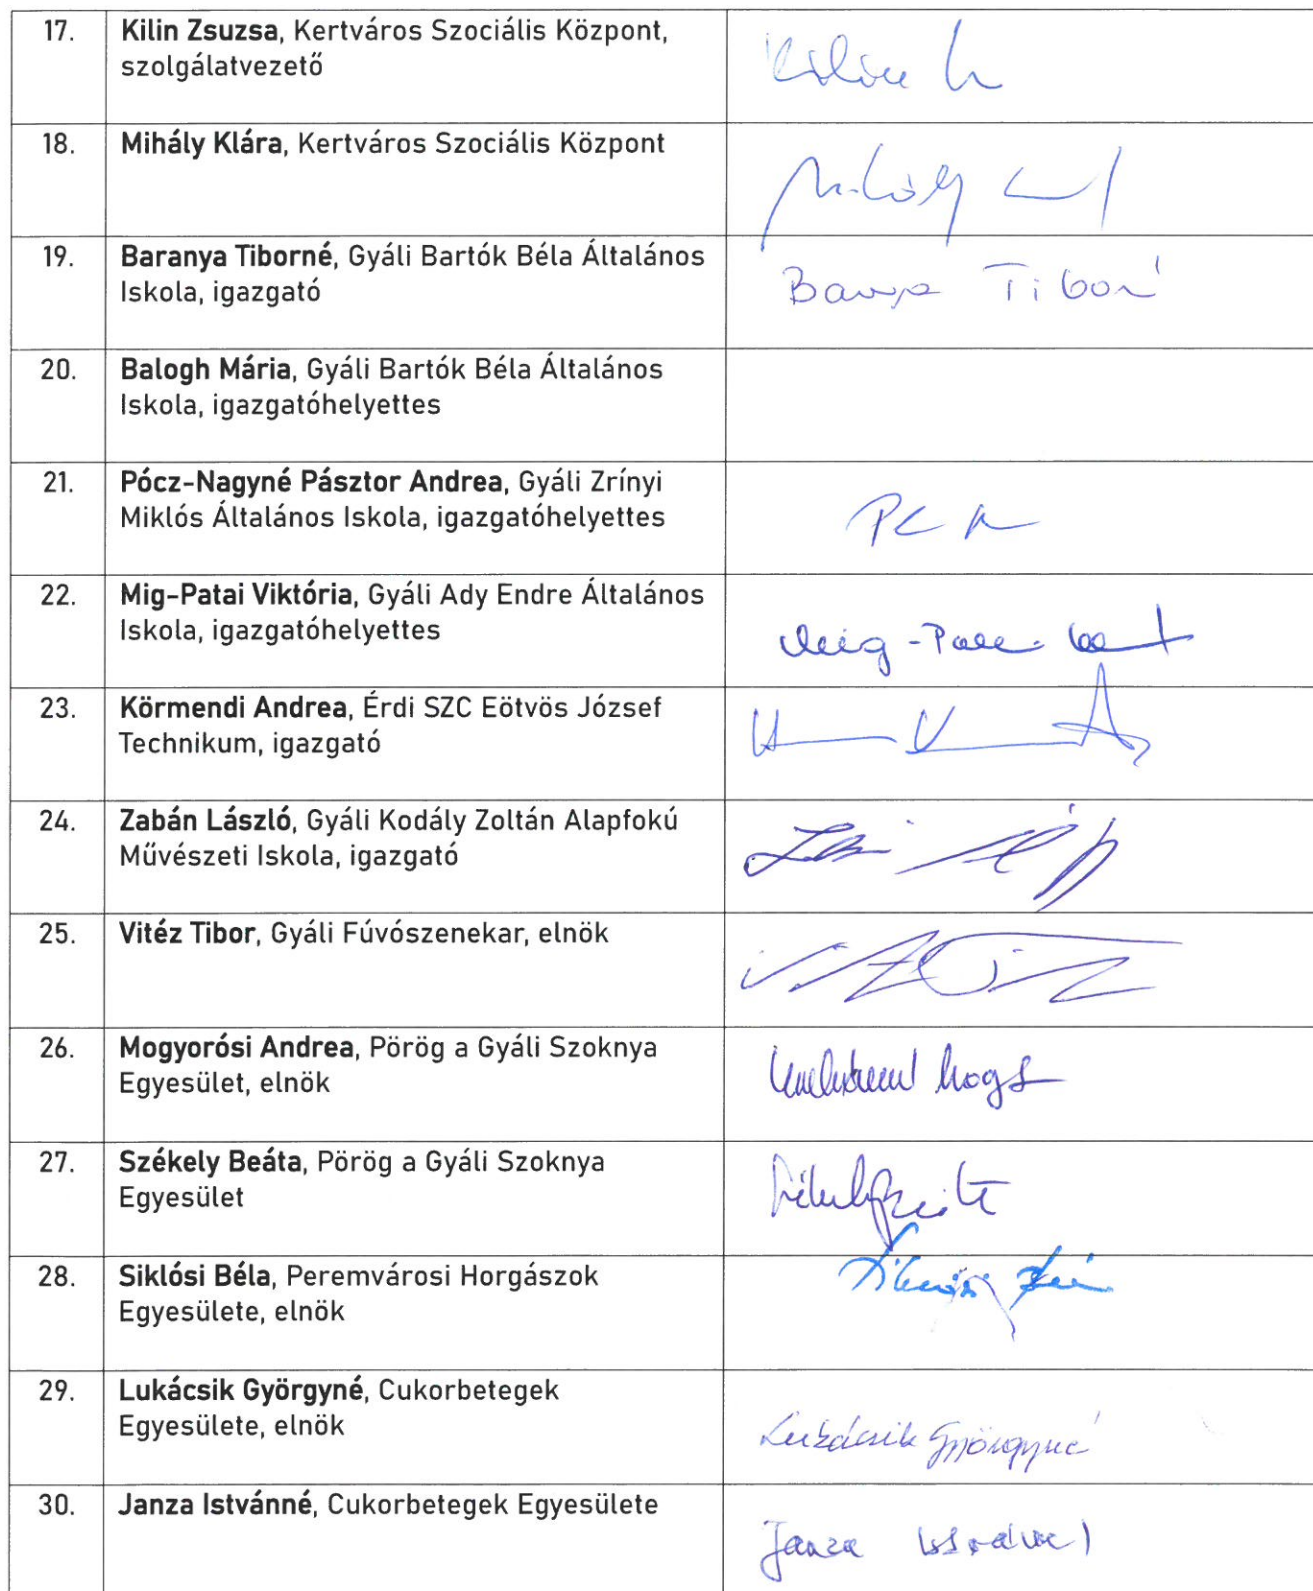 17.
Kilin Zsuzsa, Kertváros Szociális Központ,
szolgálatvezető
18.
Mihály Klára, Kertváros Szociális Központ
19.
Baranya Tiborné, Gyáli Bartók Béla Általános
Iskola, igazgató
20.
Balogh Mária, Gyáli Bartók Béla Általános
Iskola, igazgatóhelyettes
21.
Pócz-Nagyné Pásztor Andrea, Gyáli Zrínyi
Miklós Általános Iskola, igazgatóhelyettes
22.
Mig-Patai Viktória, Gyáli Ady Endre Általános
Iskola, igazgatóhelyettes
23.
Körmendi Andrea, Érdi SZC Eötvös József
Technikum, igazgató
24.
Zabán László, Gyáli Kodály Zoltán Alapfokú
Művészeti Iskola, igazgató
25.
Vitéz Tibor, Gyáli Fúvószenekar, elnök
26.
Mogyorósi Andrea, Pörög a Gyáli Szoknya
Egyesület, elnök
27.
Székely Beáta, Pörög a Gyáli Szoknya
Egyesület
28.
Siklósi Béla, Peremvárosi Horgászok
Egyesülete, elnök
29.
Lukácsik Györgyné, Cukorbetegek
Egyesülete, elnök
Lukácsik Györgyné
30.
Janza Istvánné, Cukorbetegek Egyesülete
Janza Istvánné